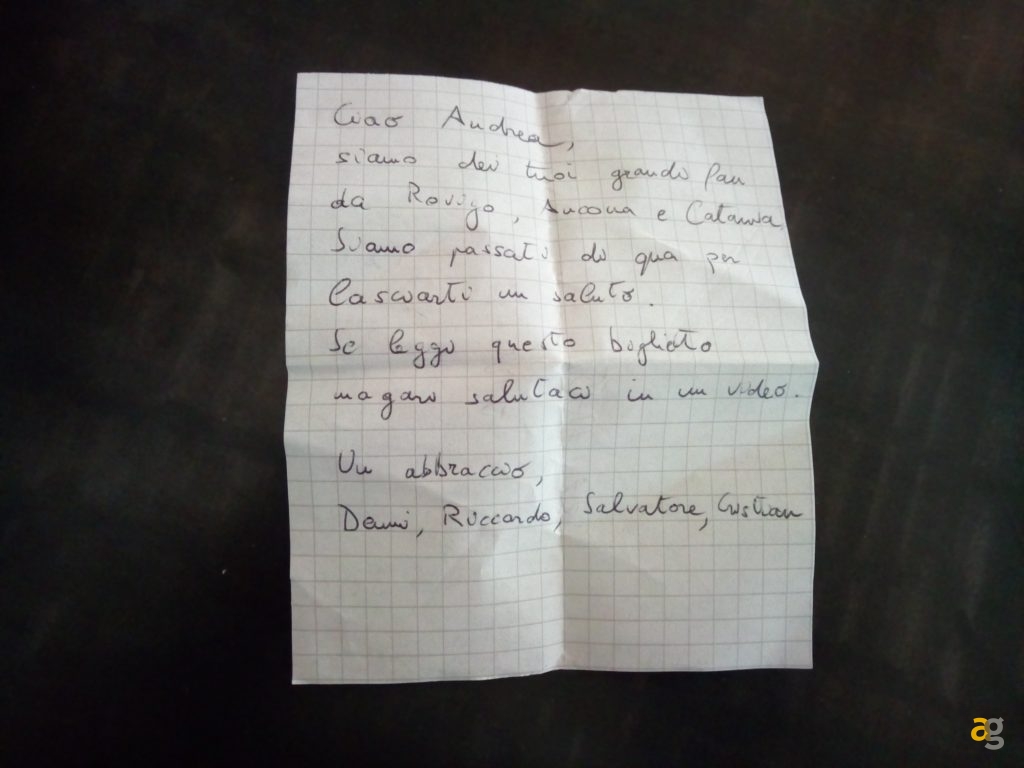 Ciao Andrea,
siamo dei tuoi grandi fan
da Rovigo, Ancona e Catania.
Siamo passati di qua per
lasciarti un saluto.
Se leggi questo biglietto
magari salutaci in un video.
Un abbraccio,
Denni, Riccardo, Salvatore, Cristian
ag